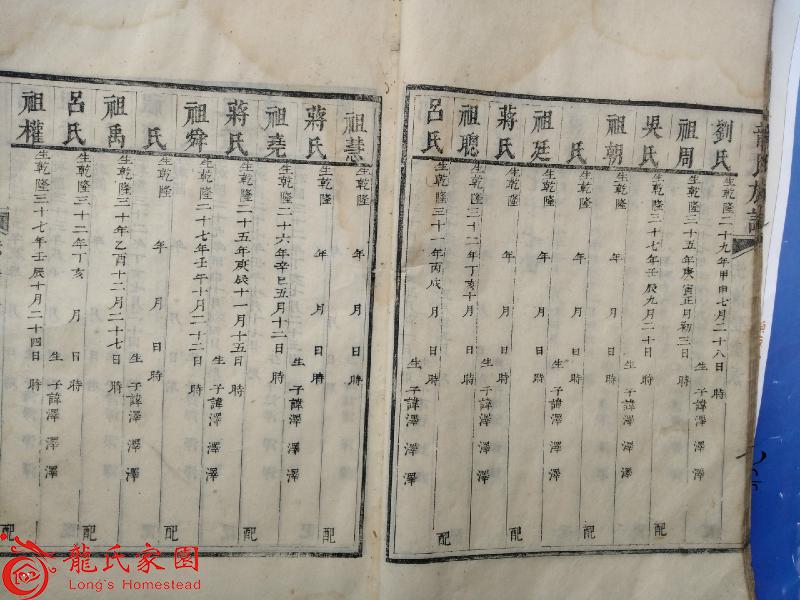 龍氏族譜
劉氏 生乾隆二十九年甲申七月二十八日 時 生 子諱澤 澤 澤
祖周 生乾隆三十五年庚寅正月初三日 時 配
吳氏 生乾隆三十七年壬辰九月二十日 時 生 子諱澤 澤 澤
祖朝 生乾隆 年 月 日 時 配
氏 生乾隆 年 月 日 時 生 子諱澤 澤 澤
祖廷 生乾隆 年 月 日 時 配
蔣氏 生乾隆 年 月 日 時 生 子諱澤 澤 澤
祖聰 生乾隆三十二年丁亥十月 日 時 配
呂氏 生乾隆三十一年丙戌 月 日 時 生 子諱澤 澤 澤
祖慧 生乾隆 年 月 日 時 配
蔣氏 生乾隆 年 月 日 時 生 子諱澤 澤 澤
祖堯 生乾隆二十六年辛巳五月十二日 時 配
蔣氏 生乾隆二十五年庚辰十一月十五日 時 生 子諱澤 澤 澤
祖舜 生乾隆二十七年壬午十月二十二日 時 配
氏 生乾隆 年 月 日 時 生 子諱澤 澤 澤
祖禹 生乾隆三十年乙酉十二月二十七日 時 配
呂氏 生乾隆三十二年丁亥 月 日 時 生 子諱澤 澤 澤
祖權 生乾隆三十七年壬辰十月二十四日 時 配
龍氏家園
Long's Homestead